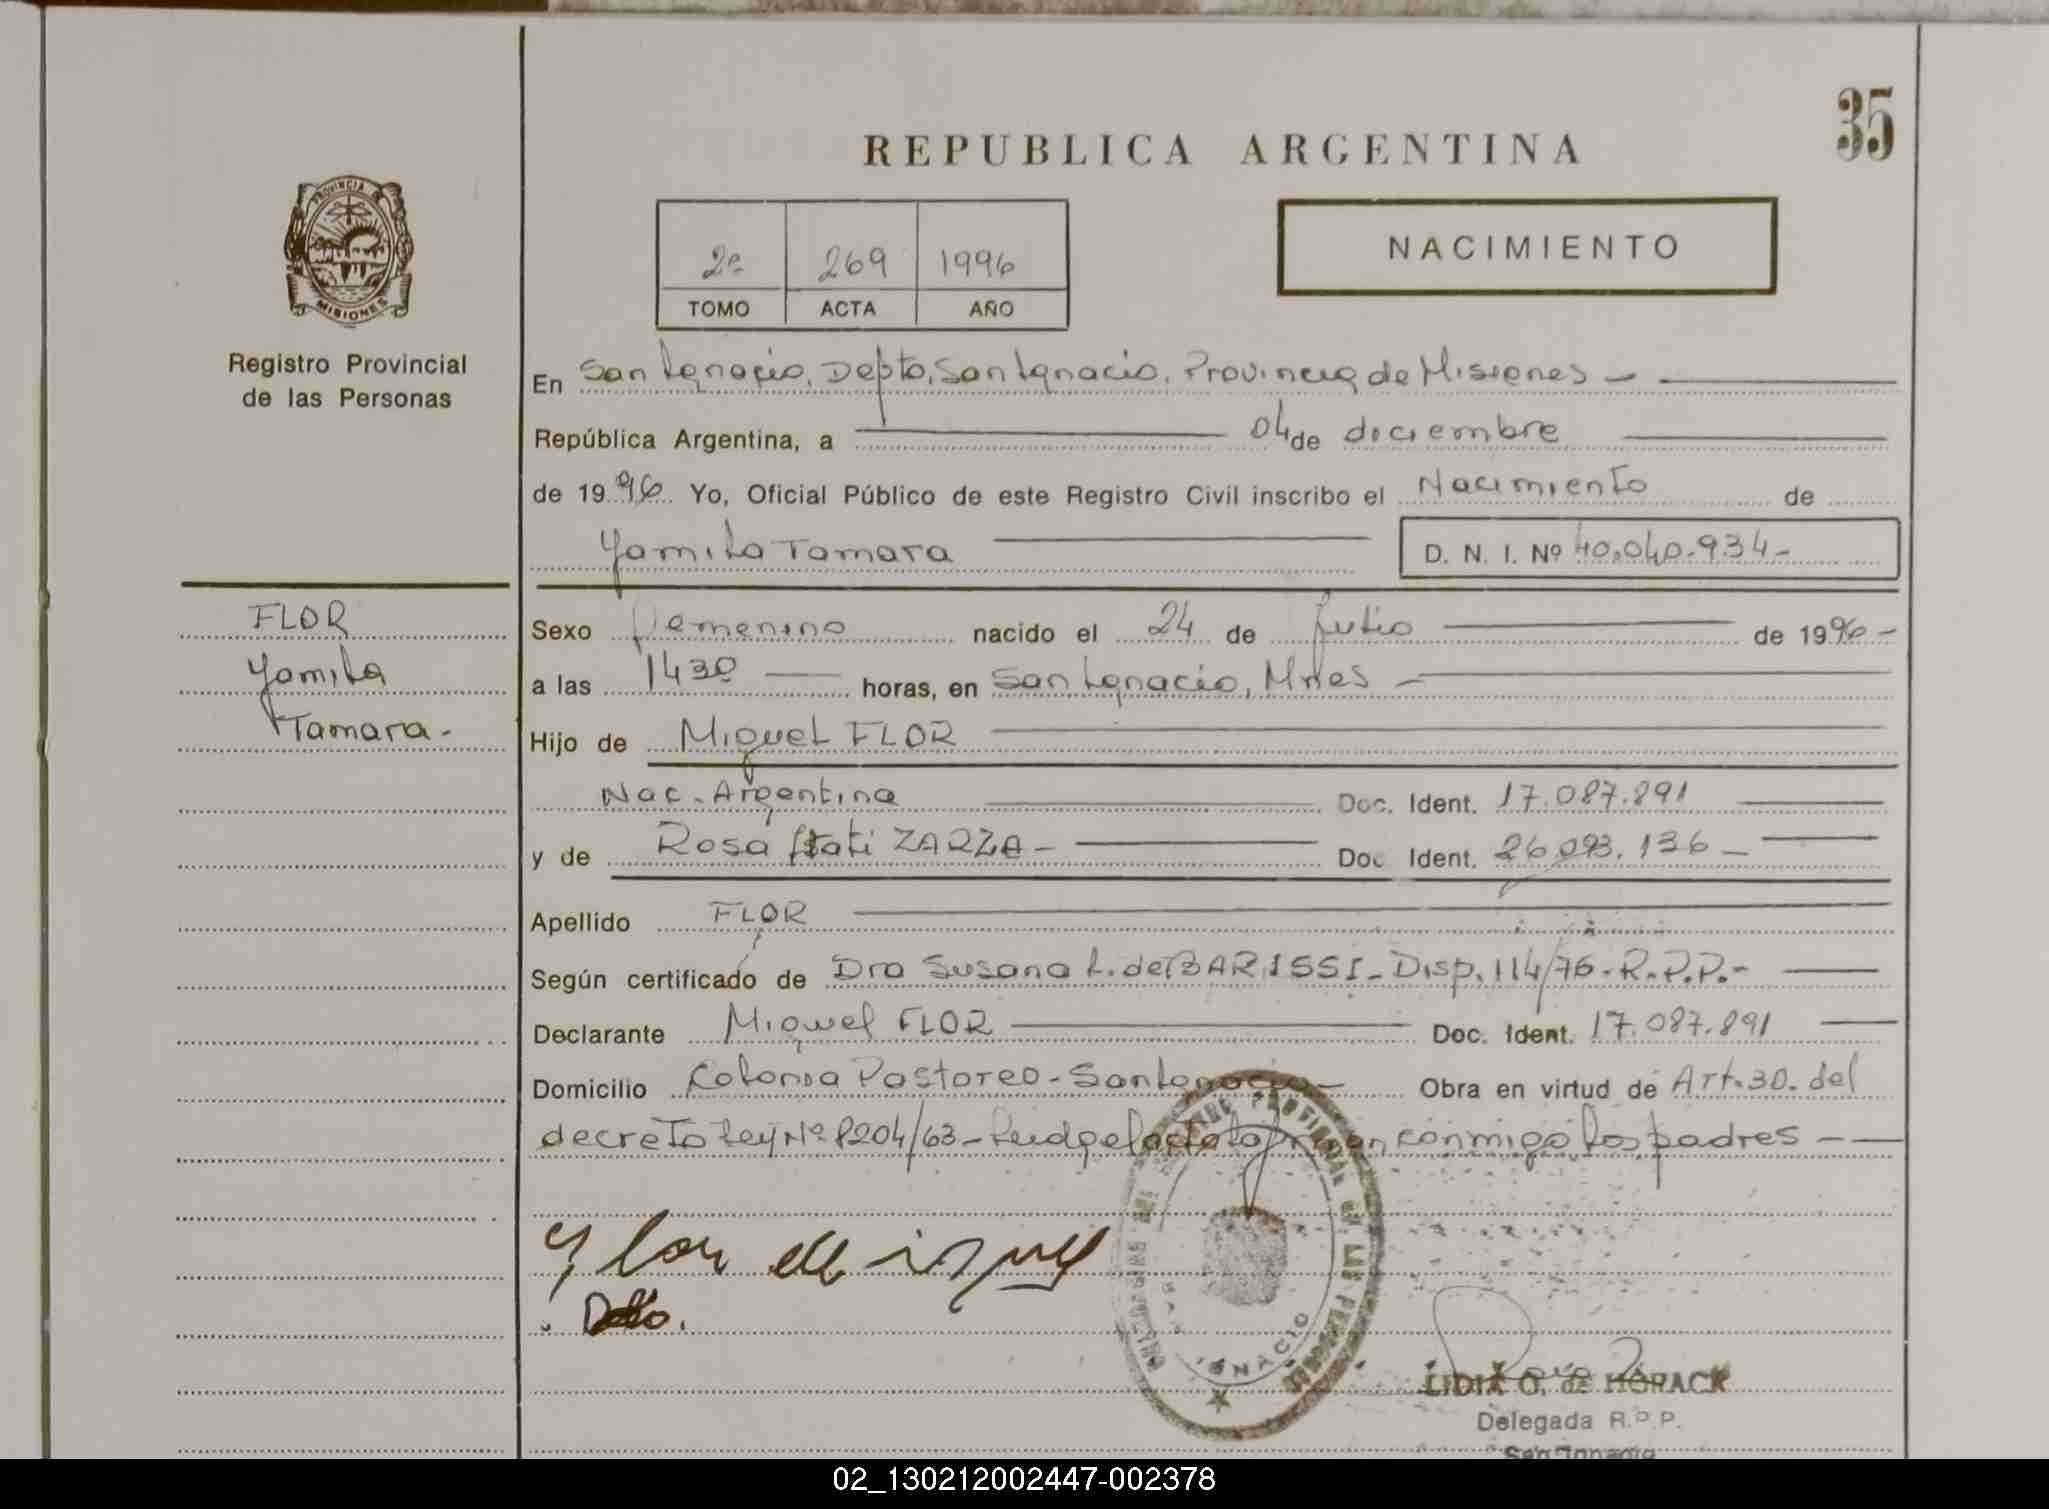 35
REPUBLICA ARGENTINA
PROVINCIA DE
MISIONES
Registro Provincial
de las Personas
2º 269 1996
TOMO ACTA AÑO
NACIMIENTO
En San Ignacio, Depto, San Ignacio, Provincia de Misiones -
República Argentina, a 04 de diciembre
de 1996 Yo, Oficial Público de este Registro Civil inscribo el Nacimiento de
Yamila Tamara D. N. I. Nº 40.040.934-
FLOR
Yamila
Tamara.-
Sexo Femenino nacido el 24 de Julio de 1996-
a las 1430 horas, en San Ignacio, Mnes -
Hijo de Miguel FLOR
Nac. Argentina Doc. Ident. 17.087.891
y de Rosa Itati ZARZA - Doc Ident. 26.093.136 -
Apellido FLOR
Según certificado de Dra Susana L. de BARISSI - Disp. 114/76 - R.P.P.-
Declarante Miguel FLOR Doc. Ident. 17.087.891
Domicilio Colonia Pastoreo - San Ignacio - Obra en virtud de Art. 30. del
decreto Ley Nº 8204/63 - Leida el acta la firman conmigo los padres -
Flor Miguel
IGNACIO
LIDIA O. de HORACK
Delegada R.P.P.
San Ignacio
02_130212002447-002378